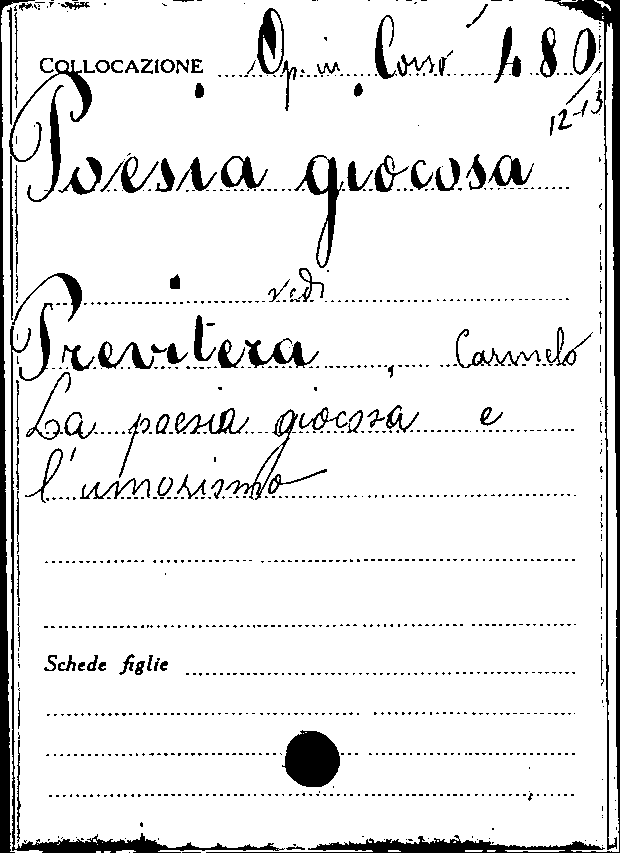 COLLOCAZIONE Op. in Corso 480
12-13
Poesia giocosa
vedi
Previtera, Carmelo
La poesia giocosa e
l'umorismo
Schede figlie